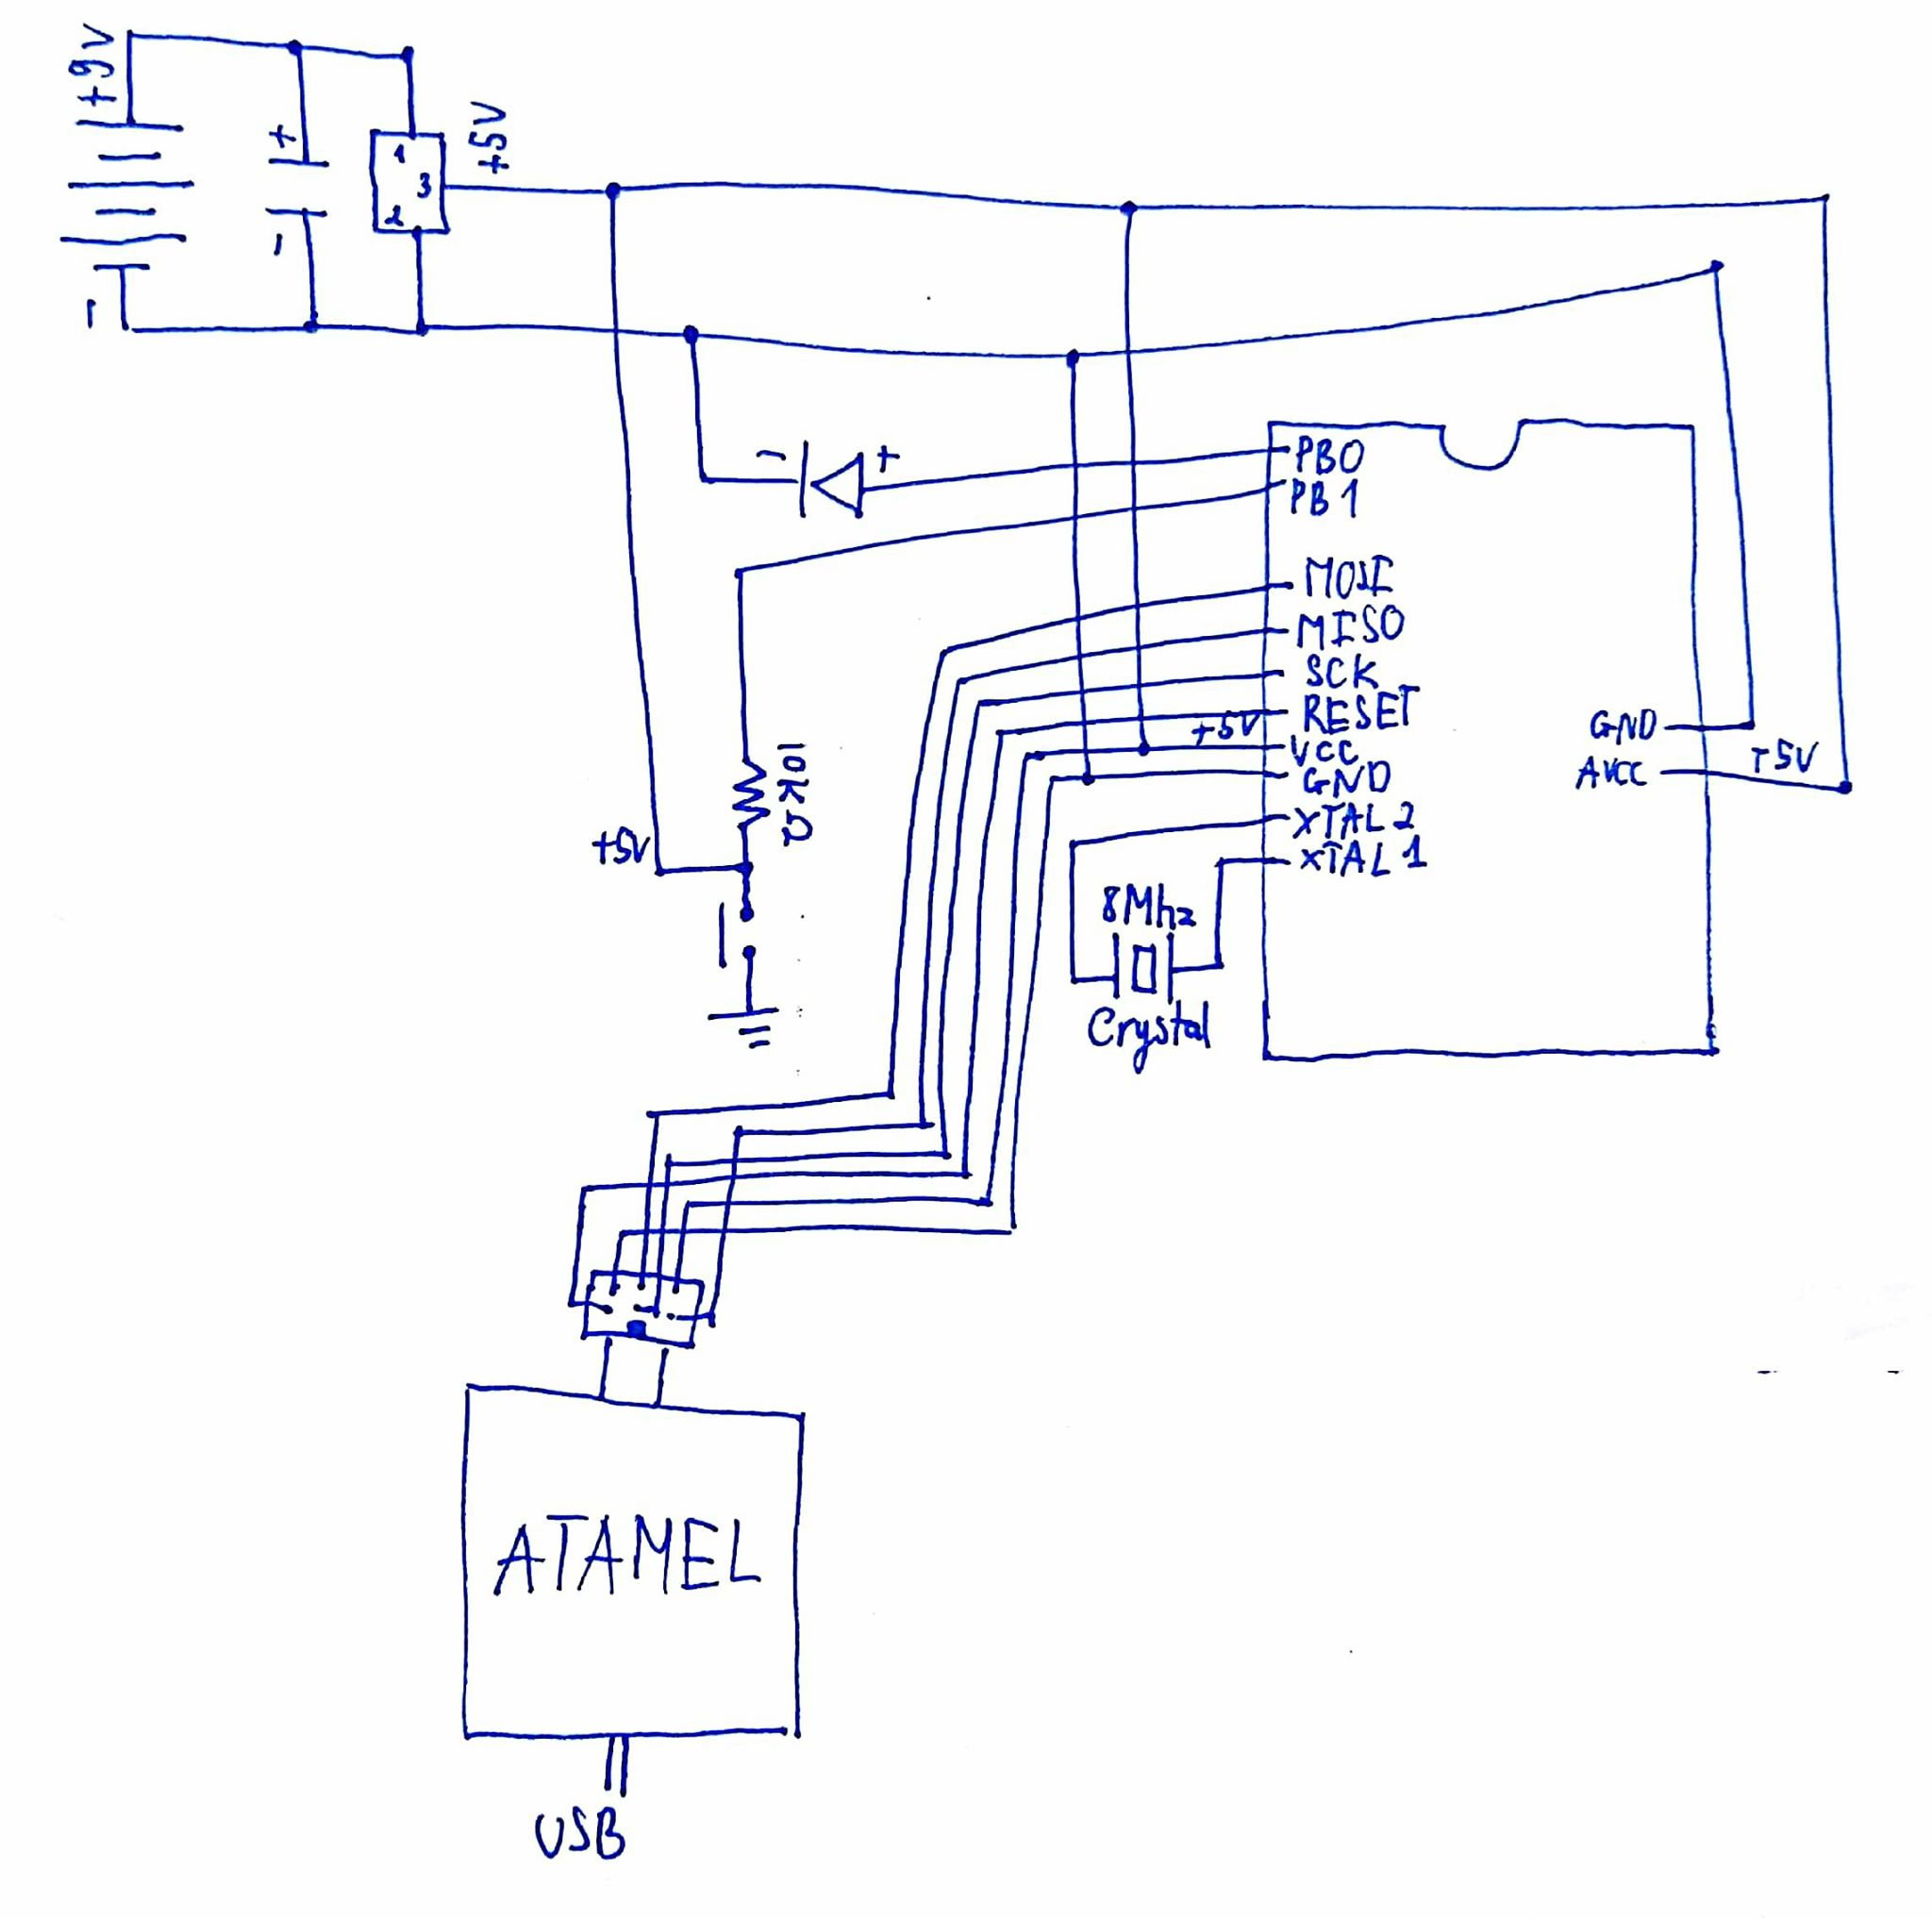 +9V
+
-
1
3
2
+5V
-
-
+
PB0
PB1
MOSI
MISO
SCK
RESET
+5V
VCC
GND
XTAL2
XTAL1
GND
AVCC
+5V
10KΩ
+5V
8Mhz
Crystal
ATAMEL
USB